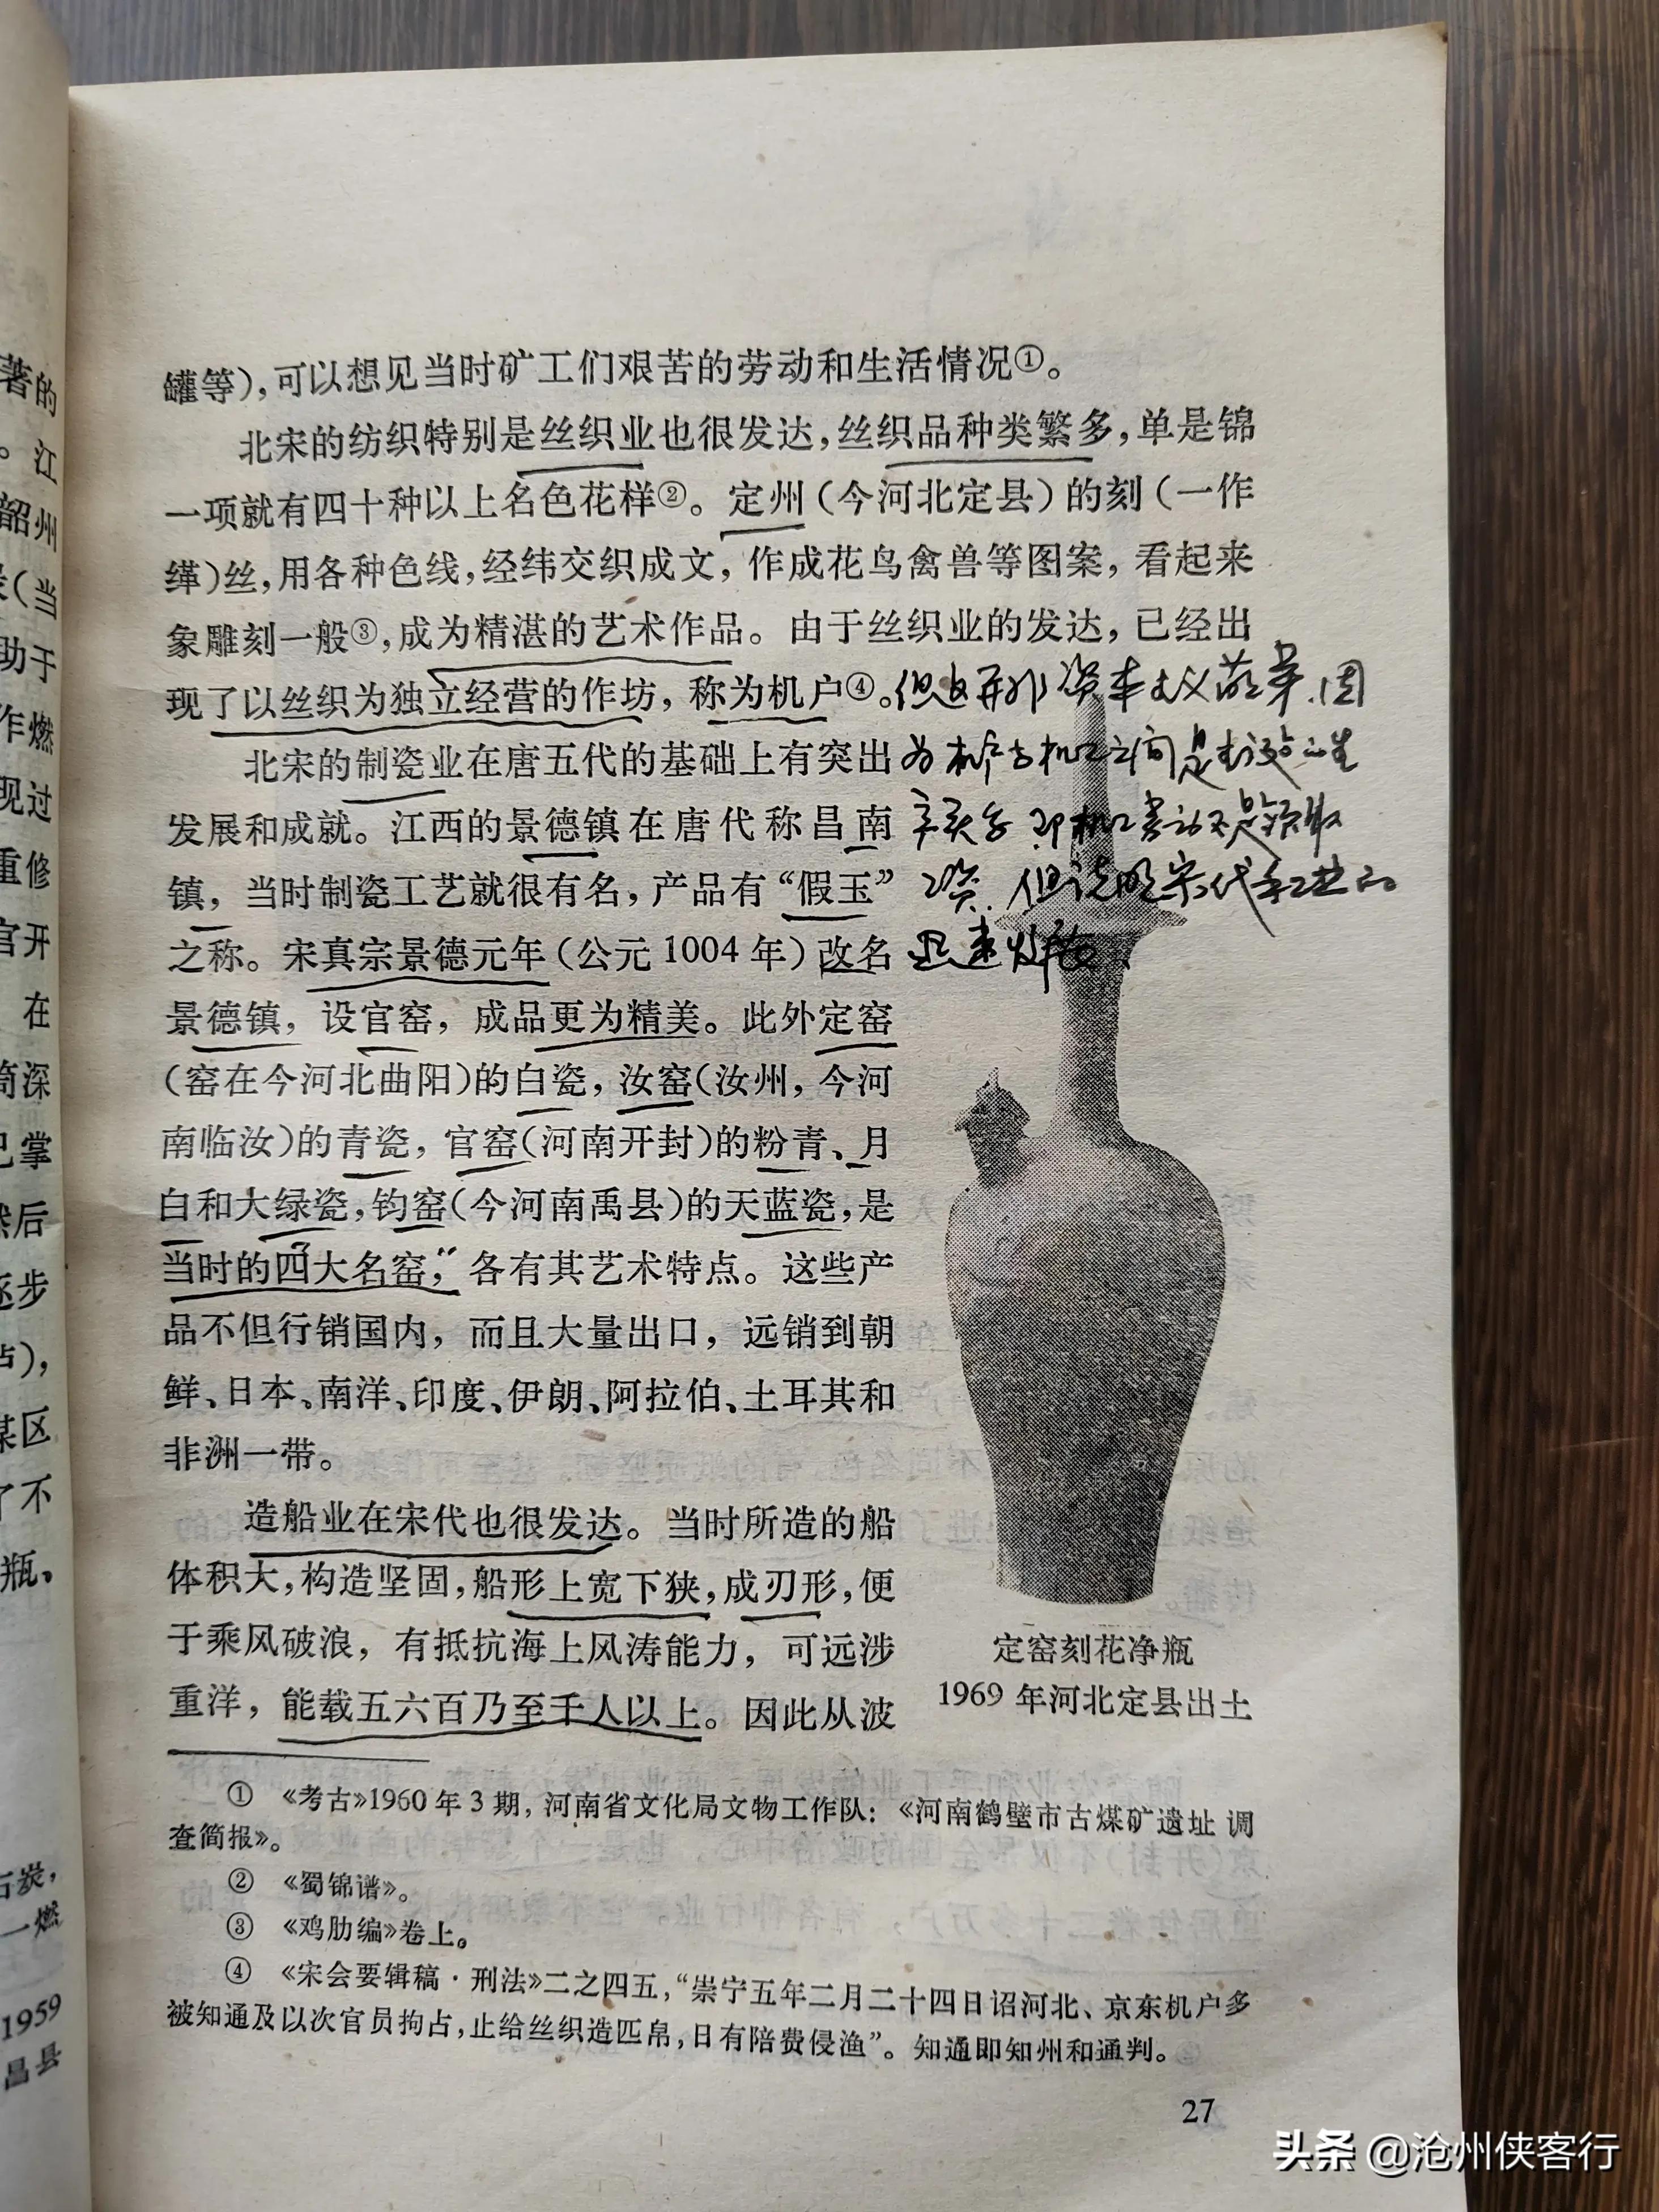 著的
。江
韶州
(当
助于
作燃
现过
重修
官开
在
筒深
已掌
然后
逐步
占),
煤区
了不
瓶,
石炭,
一燃
1959
昌县
罐等),可以想见当时矿工们艰苦的劳动和生活情况①。
北宋的纺织特别是丝织业也很发达,丝织品种类繁多,单是锦
一项就有四十种以上名色花样②。定州(今河北定县)的刻(一作
缂)丝,用各种色线,经纬交织成文,作成花鸟禽兽等图案,看起来
象雕刻一般③,成为精湛的艺术作品。由于丝织业的发达,已经出
现了以丝织为独立经营的作坊,称为机户④。
但这并非资本主义萌芽.因
北宋的制瓷业在唐五代的基础上有突出
为机户与机工之间是
发展和成就。江西的景德镇在唐代称昌南
关系 即机工劳动不是领取
镇,当时制瓷工艺就很有名,产品有“假玉”
工资.但说明宋代手工业的
之称。宋真宗景德元年(公元1004年)改名
迅速发展
景德镇,设官窑,成品更为精美。此外定窑
(窑在今河北曲阳)的白瓷,汝窑(汝州,今河
南临汝)的青瓷,官窑(河南开封)的粉青、月
白和大绿瓷,钧窑(今河南禹县)的天蓝瓷,是
当时的四大名窑,”各有其艺术特点。这些产
品不但行销国内,而且大量出口,远销到朝
鲜、日本、南洋、印度、伊朗、阿拉伯、土耳其和
非洲一带。
造船业在宋代也很发达。当时所造的船
体积大,构造坚固,船形上宽下狭,成刃形,便
于乘风破浪,有抵抗海上风涛能力,可远涉
重洋,能载五六百乃至千人以上。因此从波
定窑刻花净瓶
1969年河北定县出土
① 《考古》1960年3期,河南省文化局文物工作队:《河南鹤壁市古煤矿遗址调
查简报》。
② 《蜀锦谱》。
③ 《鸡肋编》卷上。
④ 《宋会要辑稿·刑法》二之四五,“崇宁五年二月二十四日诏河北、京东机户多
被知通及以次官员拘占,止给丝织造匹帛,日有陪费侵渔”。知通即知州和通判。
27
头条 @沧州侠客行